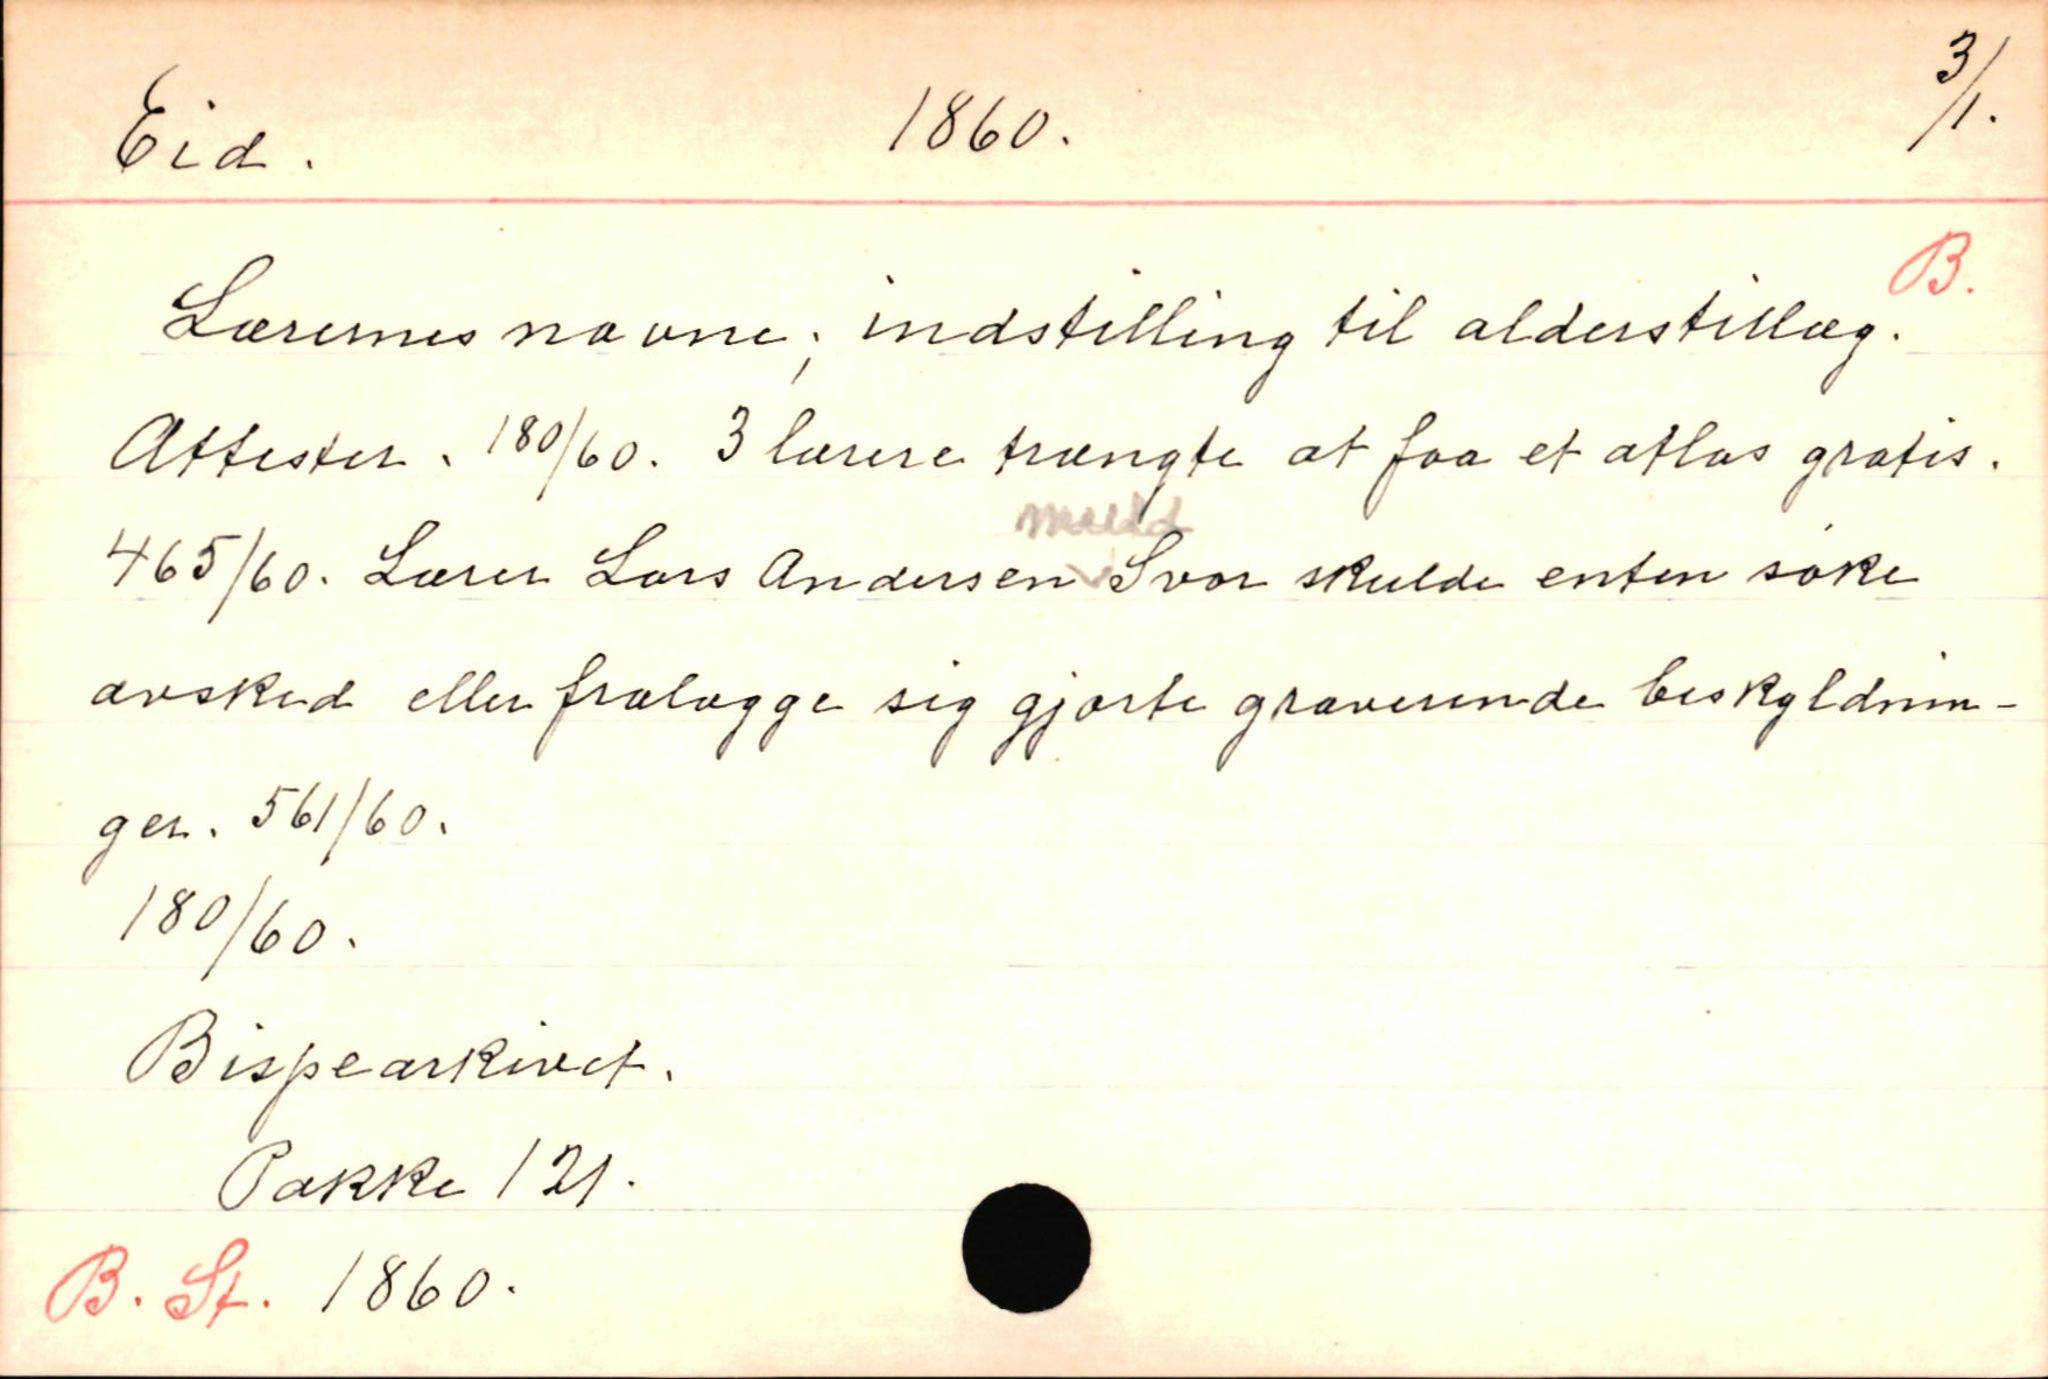 Eid. 1860. 3/1.
B.
Lærernes navne; indstilling til alderstillæg.
Attester. 180/60. 3 lærere trængte at faa et atlas gratis.
465/60. Lærer Lars Andersen Svor skulde enten søke
avsked eller fralægge sig gjorte graverende beskyldnin-
ger. 561/60.
180/60.
Bispearkivet.
Pakke 121.
B. St. 1860.